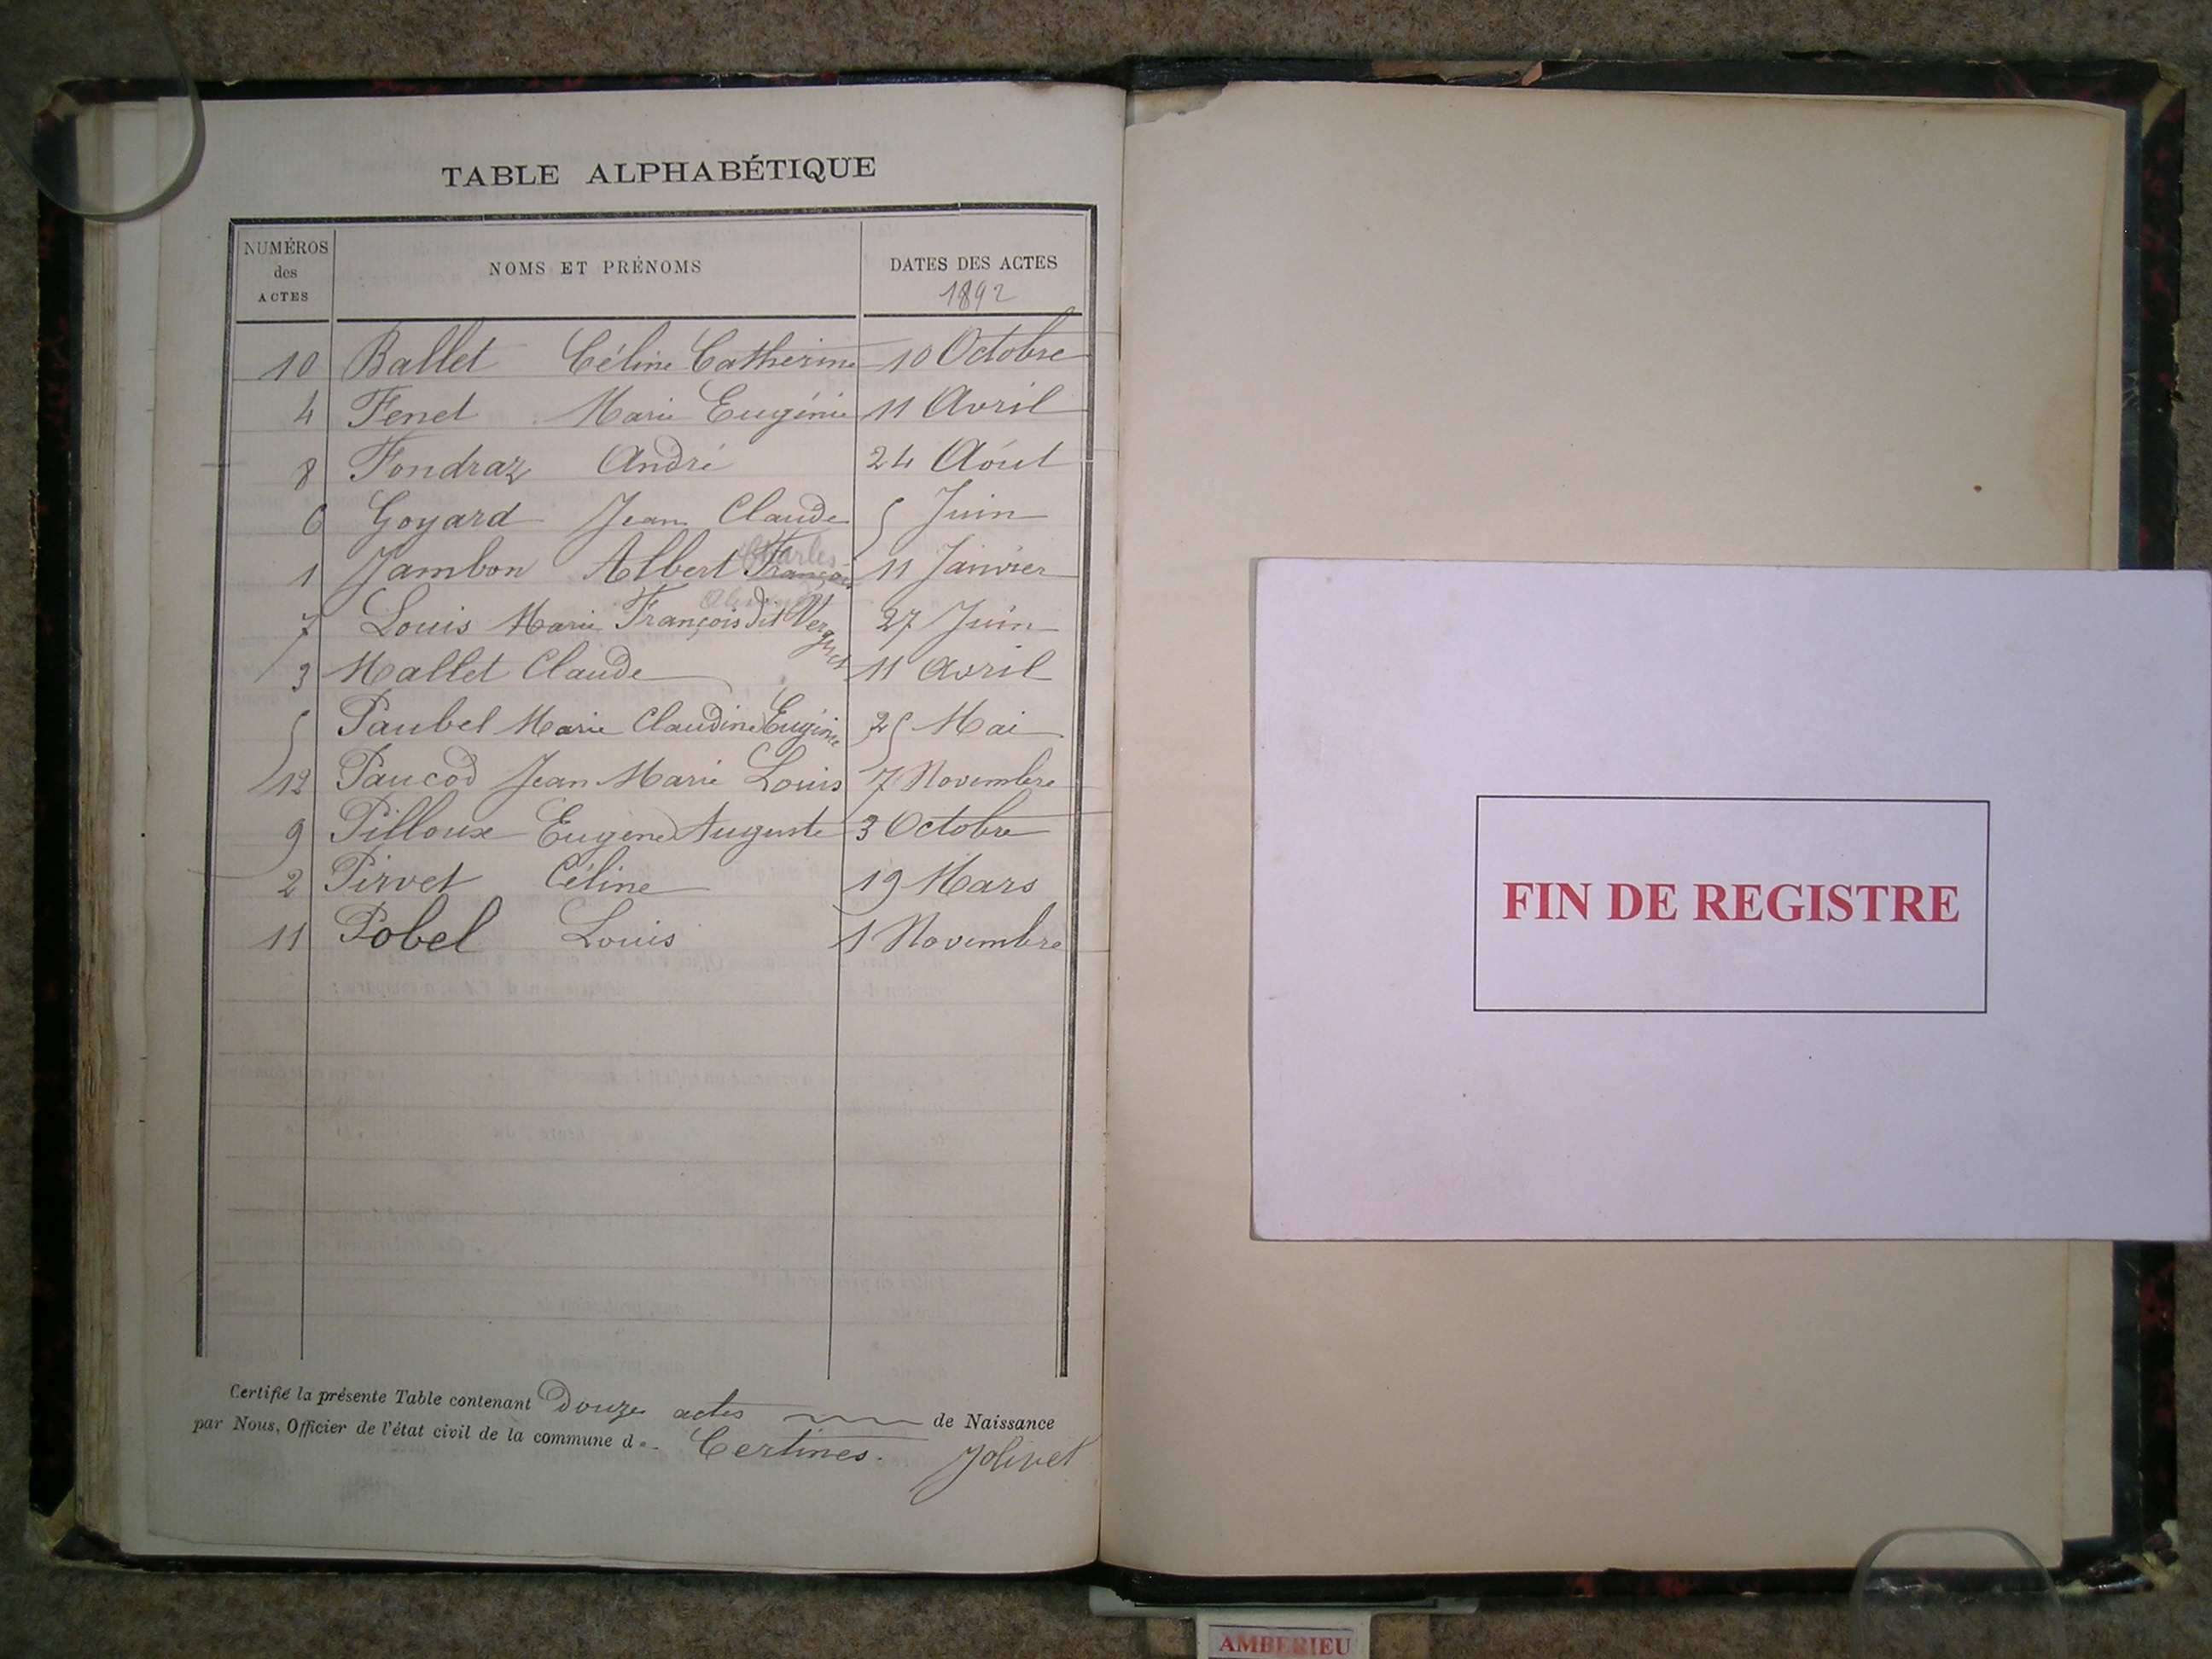 TABLE ALPHABÉTIQUE
NUMÉROS des ACTES NOMS ET PRÉNOMS DATES DES ACTES
1892
10 Ballet Céline Catherine 10 Octobre
4 Fenet Marie Eugénie 11 Avril
8 Fondraz André 24 Août
6 Goyard Jean Claude 5 Juin
Charles
1 Jambon Albert François 11 Janvier
7 Louis Marie François dit Verguet 27 Juin
3 Mallet Claude 11 Avril
5 Paubel Marie Claudine Eugénie 25 Mai
12 Paucod Jean Marie Louis 7 Novembre
9 Pilloux Eugène Auguste 3 Octobre
2 Pirvet Céline 19 Mars
11 Pobel Louis 1 Novembre
Certifié la présente Table contenant Douze actes de Naissance
par Nous, Officier de l'état civil de la commune de Certines. Jolivet
FIN DE REGISTRE
AMBERIEU